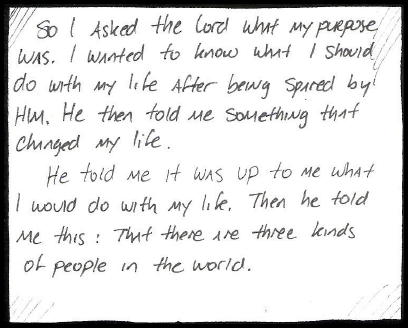 So I Asked the Lord what my purpose
was. I wanted to know what I should
do with my life After being spared by
Him. He then told me something that
changed my life.
He told me it was up to me what
I would do with my life. Then he told
me this: That there are three kinds
of people in the world.